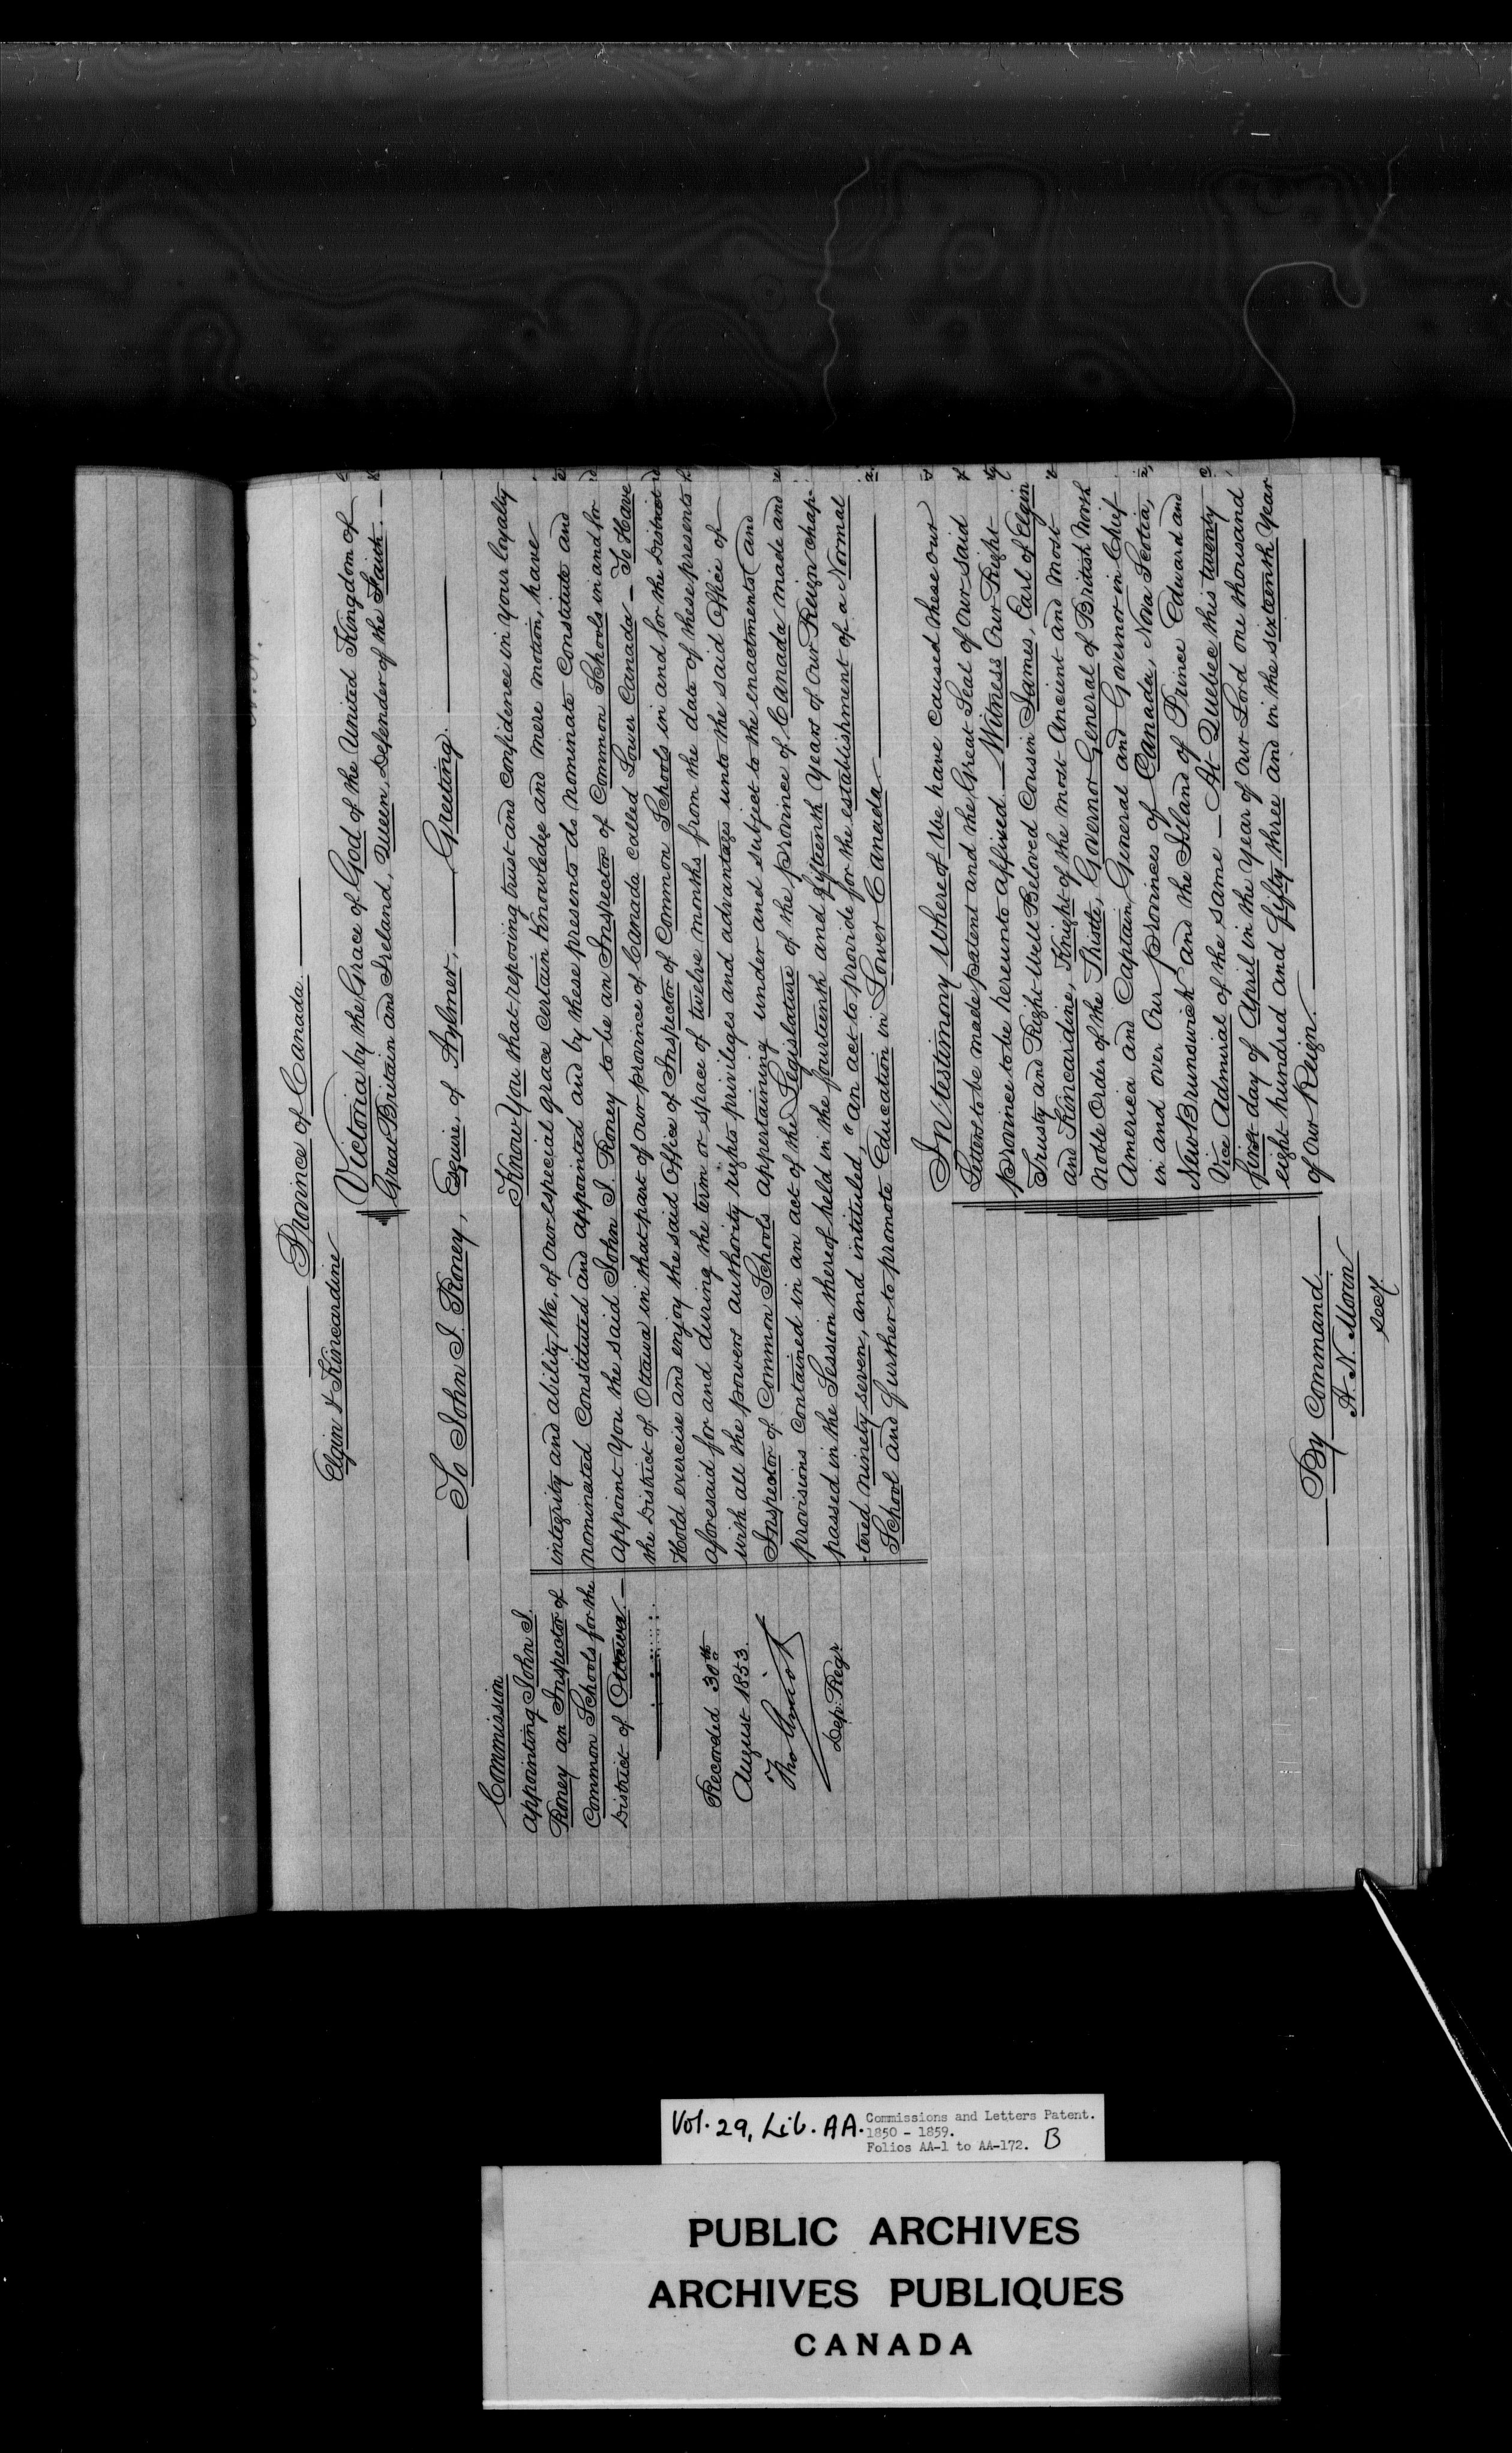 Province of Canada.
Elgin & Kincardine
Victoria by the Grace of God of the United Kingdom of
Great Britain and Ireland, Queen, Defender of the Faith.
To John J. Roney, Esquire, of Aylmer, Greeting.
Commission
appointing John J.
Roney an Inspector of
Common Schools for the
District of Ottawa.
Recorded 30th
August 1853.
Tho Amiot
Dep: Regr.
Know You that reposing trust and confidence in your Loyalty
integrity and ability We, of our especial grace certain Knowledge and mere motion, have
nominated Constituted and appointed and by these presents do nominate Constitute and
appoint You the said John J. Roney to be an Inspector of Common Schools in and for
the District of Ottawa in that part of our province of Canada called Lower Canada — To Have
Hold exercise and enjoy the said Office of Inspector of Common Schools in and for the District
aforesaid for and during the term or space of twelve months from the date of these presents
with all the powers authority rights privileges and advantages unto the said Office of
Inspector of Common Schools appertaining under and subject to the enactments and
provisions contained in an act of the Legislature of the province of Canada made and
passed in the Session thereof held in the fourteenth and fifteenth Years of Our Reign chap-
-tered ninety seven, and intituled, "an act to provide for the establishment of a Normal
School and further to promote Education in Lower Canada
In testimony Whereof We have caused these our
Letters to be made patent and the Great Seal of Our said
province to be hereunto affixed. — Witness Our Right
Trusty and Right Well Beloved Cousin James, Earl of Elgin
and Kincardine, Knight of the most Ancient and Most
Noble Order of the Thistle, Governor General of British North
America and Captain General and Governor in Chief
in and over Our provinces of Canada, Nova Scotia,
New Brunswick and the Island of Prince Edward and
Vice Admiral of the same — At Quebec this twenty
first day of April in the Year of Our Lord one thousand
eight hundred and fifty three and in the sixteenth Year
of Our Reign.
By Command
A. N. Morin
Secy.
Vol. 29, Lib. AA. Commissions and Letters Patent.
1850 - 1859.
Folios AA-1 to AA-172. B
PUBLIC ARCHIVES
ARCHIVES PUBLIQUES
CANADA